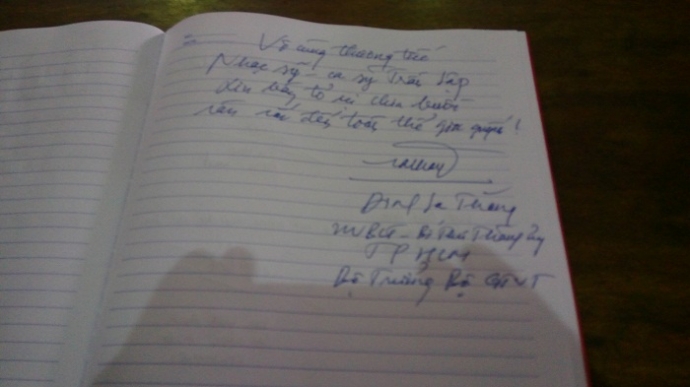 Vô cùng thương tiếc
Nhạc sỹ - ca sỹ Trần Lập
Xin bày tỏ sự chia buồn
sâu sắc đến toàn thể gia quyến!
Đinh La Thăng
UV BCT - Bí thư Thành ủy
TP HCM
Bộ Trưởng Bộ GTVT